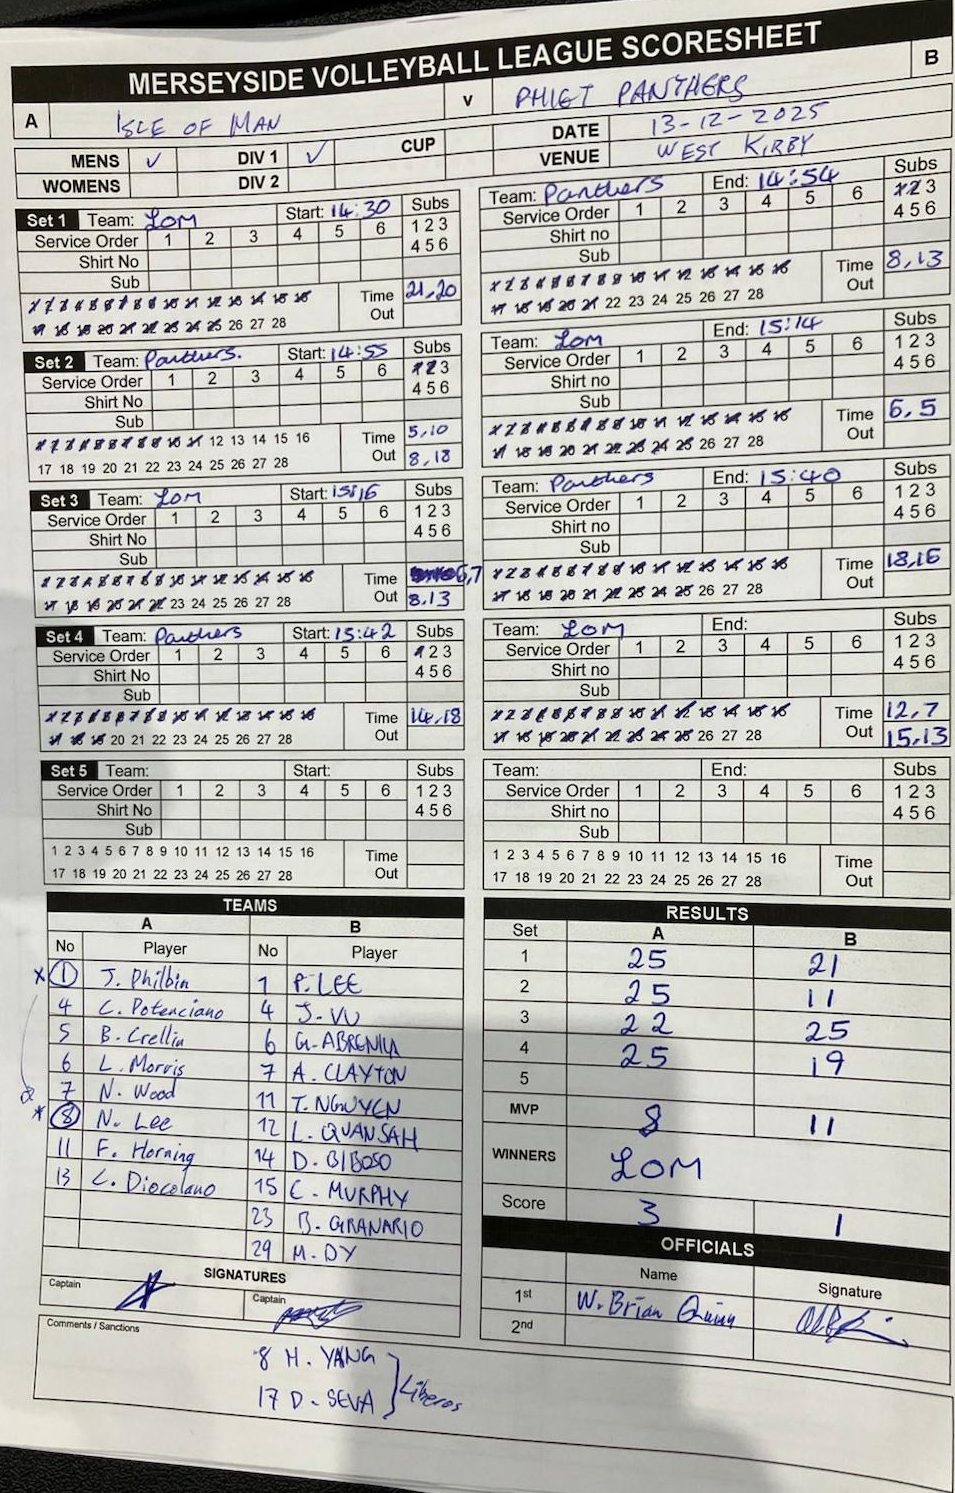 MERSEYSIDE VOLLEYBALL LEAGUE SCORESHEET
A ISLE OF MAN v PHIGT PANTHERS B
MENS ✓ DIV 1 ✓ CUP DATE 13-12-2025
WOMENS DIV 2 VENUE WEST KIRBY
Set 1 Team: IOM Start: 14:30 Subs
Service Order 1 2 3 4 5 6 1 2 3
Shirt No 4 5 6
Sub
1 2 3 4 5 6 7 8 9 10 11 12 13 14 15 16 Time 21,20
17 18 19 20 21 22 23 24 25 26 27 28 Out
Team: Panthers End: 14:54 Subs
Service Order 1 2 3 4 5 6 1 2 3
Shirt no 4 5 6
Sub
1 2 3 4 5 6 7 8 9 10 11 12 13 14 15 16 Time 8,13
17 18 19 20 21 22 23 24 25 26 27 28 Out
Set 2 Team: Panthers. Start: 14:55 Subs
Service Order 1 2 3 4 5 6 1 2 3
Shirt No 4 5 6
Sub
1 2 3 4 5 6 7 8 9 10 11 12 13 14 15 16 Time 5,10
17 18 19 20 21 22 23 24 25 26 27 28 Out 8,18
Team: IOM End: 15:14 Subs
Service Order 1 2 3 4 5 6 1 2 3
Shirt no 4 5 6
Sub
1 2 3 4 5 6 7 8 9 10 11 12 13 14 15 16 Time 6,5
17 18 19 20 21 22 23 24 25 26 27 28 Out
Set 3 Team: IOM Start: 15:16 Subs
Service Order 1 2 3 4 5 6 1 2 3
Shirt No 4 5 6
Sub
1 2 3 4 5 6 7 8 9 10 11 12 13 14 15 16 Time 6,7
17 18 19 20 21 22 23 24 25 26 27 28 Out 8.13
Team: Panthers End: 15:40 Subs
Service Order 1 2 3 4 5 6 1 2 3
Shirt no 4 5 6
Sub
1 2 3 4 5 6 7 8 9 10 11 12 13 14 15 16 Time 13,16
17 18 19 20 21 22 23 24 25 26 27 28 Out
Set 4 Team: Panthers Start: 15:42 Subs
Service Order 1 2 3 4 5 6 1 2 3
Shirt No 4 5 6
Sub
1 2 3 4 5 6 7 8 9 10 11 12 13 14 15 16 Time 14,18
17 18 19 20 21 22 23 24 25 26 27 28 Out
Team: IOM End: Subs
Service Order 1 2 3 4 5 6 1 2 3
Shirt no 4 5 6
Sub
1 2 3 4 5 6 7 8 9 10 11 12 13 14 15 16 Time 12,7
17 18 19 20 21 22 23 24 25 26 27 28 Out 15,13
Set 5 Team: Start: Subs
Service Order 1 2 3 4 5 6 1 2 3
Shirt No 4 5 6
Sub
1 2 3 4 5 6 7 8 9 10 11 12 13 14 15 16 Time
17 18 19 20 21 22 23 24 25 26 27 28 Out
Team: End: Subs
Service Order 1 2 3 4 5 6 1 2 3
Shirt no 4 5 6
Sub
1 2 3 4 5 6 7 8 9 10 11 12 13 14 15 16 Time
17 18 19 20 21 22 23 24 25 26 27 28 Out
TEAMS
A B
No Player No Player
1 J. Philbin 1 P. LEE
4 C. Potenciano 4 J. VU
5 B. Crellin 6 G. ABRENILLA
6 L. Morris 7 A. CLAYTON
7 N. Wood 11 T. NGUYEN
8 N. Lee 12 L. QUANSAH
11 F. Horning 14 D. BIBOSO
13 C. Diocolano 15 C. MURPHY
23 B. GRANARIO
29 M. DY
SIGNATURES
Captain Captain
Comments / Sanctions
8 H. YANG
17 D. SEVA
Liberos
RESULTS
Set A B
1 25 21
2 25 11
3 22 25
4 25 19
5
MVP 8 11
WINNERS IOM
Score 3 1
OFFICIALS
Name Signature
1st W. Brian Quinn
2nd